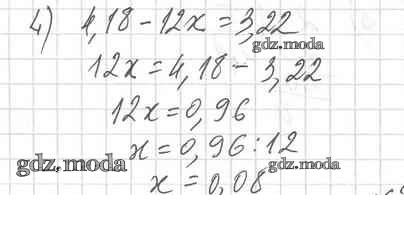 4) 4,18 - 12x = 3,22
gdz.moda
12x = 4,18 - 3,22
12x = 0,96
x = 0,96 : 12
gdz.moda
gdz.moda
x = 0,08